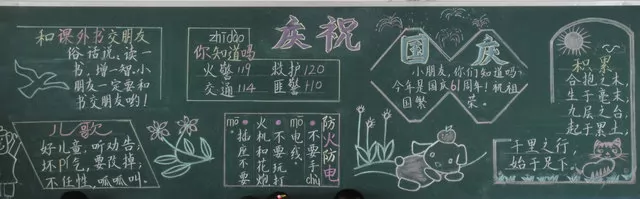 和课外书交朋友
俗话说:读一
书,增一智.小
朋友一定要和
书交朋友哟!
儿歌
好儿童,听劝告,
坏Pí气,要改掉,
不任性,呱呱叫.
zhīdào
你知道吗
火警119 救护120
交通114 匪警110
庆祝
国庆
小朋友,你们知道吗?
今年是国庆61周年!祝祖
国繁荣.
防火防电
不要手chù
mō电线.
不要玩打
火机和花炮
不要
mō插座
和累
合抱之木,
生于毫末,
九层之台,
起于累土,
千里之行,
始于足下.